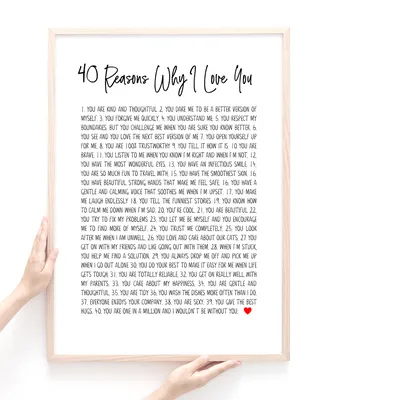 40 Reasons Why I Love You
1. YOU ARE KIND AND THOUGHTFUL. 2. YOU DARE ME TO BE A BETTER VERSION OF
MYSELF. 3. YOU FORGIVE ME QUICKLY. 4. YOU UNDERSTAND ME. 5. YOU RESPECT MY
BOUNDARIES, BUT YOU CHALLENGE ME WHEN YOU ARE SURE YOU KNOW BETTER. 6.
YOU SEE AND YOU LOVE THE NEXT BEST VERSION OF ME. 7. YOU OPEN YOURSELF UP
FOR ME. 8. YOU ARE 100% TRUSTWORTHY. 9. YOU TELL IT HOW IT IS. 10. YOU ARE
BRAVE. 11. YOU LISTEN TO ME WHEN YOU KNOW I'M RIGHT AND WHEN I'M NOT. 12.
YOU HAVE THE MOST WONDERFUL EYES. 13. YOU HAVE AN INFECTIOUS SMILE. 14.
YOU ARE SO MUCH FUN TO TRAVEL WITH. 15. YOU HAVE THE SMOOTHEST SKIN. 16.
YOU HAVE BEAUTIFUL STRONG HANDS THAT MAKE ME FEEL SAFE. 16. YOU HAVE A
GENTLE AND CALMING VOICE THAT SOOTHES ME WHEN I'M UPSET. 17. YOU MAKE
ME LAUGH ENDLESSLY. 18. YOU TELL THE FUNNIEST STORIES. 19. YOU KNOW HOW
TO CALM ME DOWN WHEN I'M SAD. 20. YOU'RE COOL. 21. YOU ARE BEAUTIFUL. 22.
YOU TRY TO FIX MY PROBLEMS. 23. YOU LET ME BE MYSELF AND YOU ENCOURAGE
ME TO FIND MORE OF MYSELF. 24. YOU TRUST ME COMPLETELY. 25. YOU LOOK
AFTER ME WHEN I AM UNWELL. 26. YOU LOVE AND CARE ABOUT OUR CATS. 27. YOU
GET ON WITH MY FRIENDS AND LIKE GOING OUT WITH THEM. 28. WHEN I'M STUCK,
YOU HELP ME FIND A SOLUTION. 29. YOU ALWAYS DROP ME OFF AND PICK ME UP
WHEN I GO OUT ALONE. 30. YOU DO YOUR BEST TO MAKE IT EASY FOR ME WHEN LIFE
GETS TOUGH. 31. YOU ARE TOTALLY RELIABLE. 32. YOU GET ON REALLY WELL WITH
MY PARENTS. 33. YOU CARE ABOUT MY HAPPINESS. 34. YOU ARE GENTLE AND
THOUGHTFUL. 35. YOU ARE TIDY. 36. YOU WASH THE DISHES MORE OFTEN THAN I DO.
37. EVERYONE ENJOYS YOUR COMPANY. 38. YOU ARE SEXY. 39. YOU GIVE THE BEST
HUGS. 40. YOU ARE ONE IN A MILLION AND I WOULDN'T BE WITHOUT YOU.